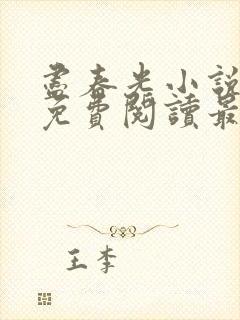 尽春光小說
免費閱讀最
王李